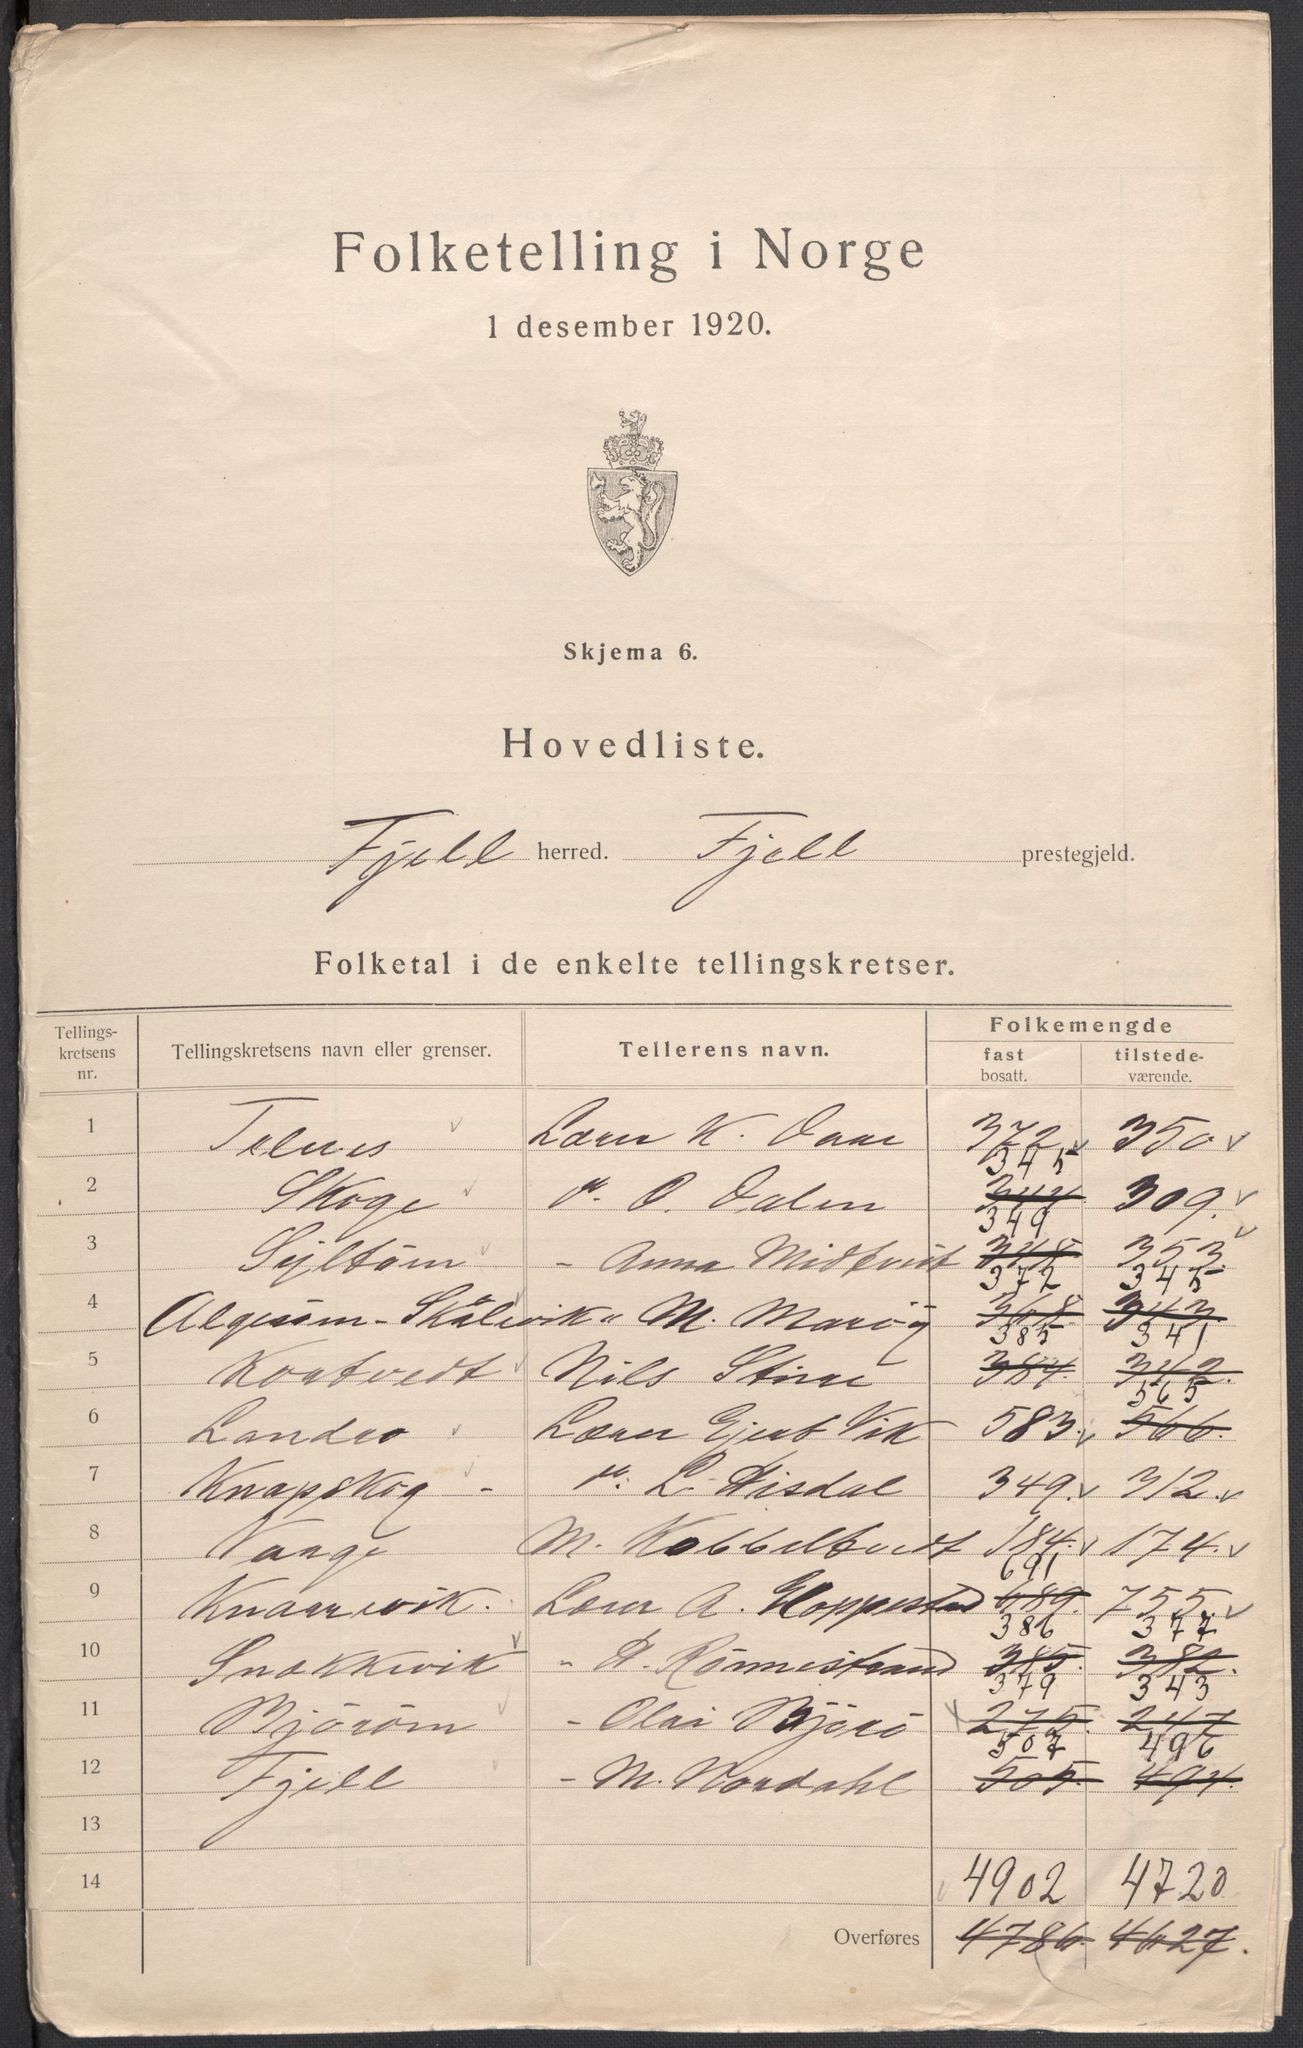 Folketelling i Norge
1 desember 1920.
Skjema 6.
Hovedliste.
Fjell herred. Fjell prestegjeld.
Folketal i de enkelte tellingskretser.
Tellings-kretsens nr. Tellingskretsens navn eller grenser. Tellerens navn. Folkemengde
fast bosatt. tilstede-værende.
1 Telnes Lærer K. 372 350
345
2 Skoge " O. Dalen 344 309.
349
3 - Anna Midtvedt 348 353
372 345
4 Algerøen - Skålevik " M. Marøy 368 343
385 341
5 Kortvedt Nils Stine 384. 342.
565
6 Landro Lærer Gjert Vik 583. 566.
7 Knapskog - " L. 349. 312.
8 Vaage M. Kobbeltvedt 184. 174.
691
9 Knarrevik. Lærer A. Hoppestad 689. 755.
386 377
10 Snekkevik - Rönnestrand 385. 382.
379 343
11 Björöen - Olai Bjørö 275. 247
507 496
12 Fjell - M. Nordahl 505. 494.
13
14 4902 4720
Overføres 4786. 4627.